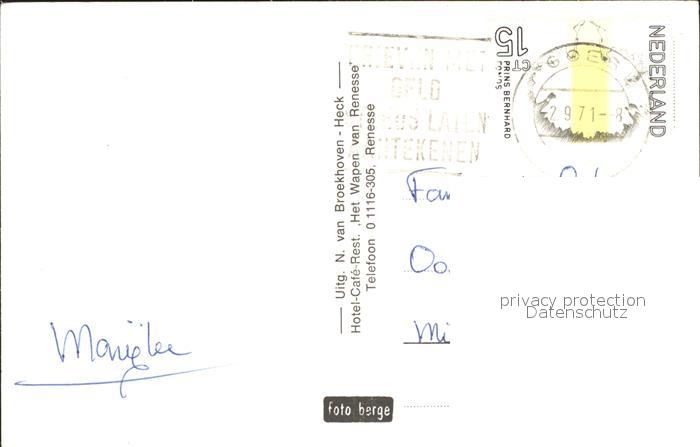 BRIEVEN MET
GELD
LATEN
AANTEKENEN
GOES
2 9 71 - 8
15
CT
PRINS BERNHARD
FONDS
NEDERLAND
Uitg. N. van Broekhoven - Heck
Hotel-Café-Rest. „Het Wapen van Renesse"
Telefoon 0 1116-305, Renesse
Fam
Oo
Mi
privacy protection
Datenschutz
foto berge